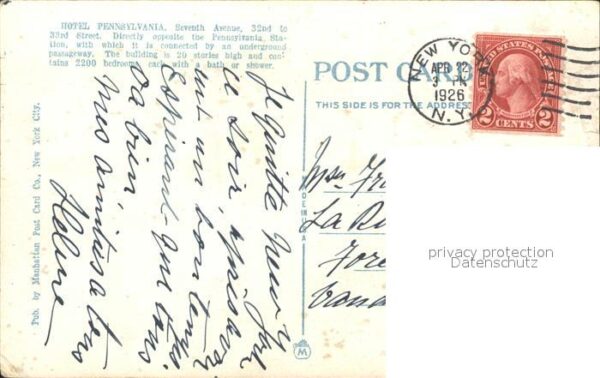 HOTEL PENNSYLVANIA, Seventh Avenue, 32nd to
33rd Street. Directly opposite the Pennsylvania Sta-
tion, with which it is connected by an underground
passageway. The building is 20 stories high and con-
tains 2200 bedrooms, each with a bath or shower.
POST CARD
THIS SIDE IS FOR THE ADDRESS
NEW YORK
APR 22
1926
N.Y.
UNITED STATES POSTAGE
2 CENTS 2
Je quitte New York
ce soir, après avoir
eu un bon temps.
Espérant que tous
va bien
mes amitiés à tous
Pub. by Manhattan Post Card Co., New York City.
MADE IN U.S.A.
M
La
Canada
privacy protection
Datenschutz